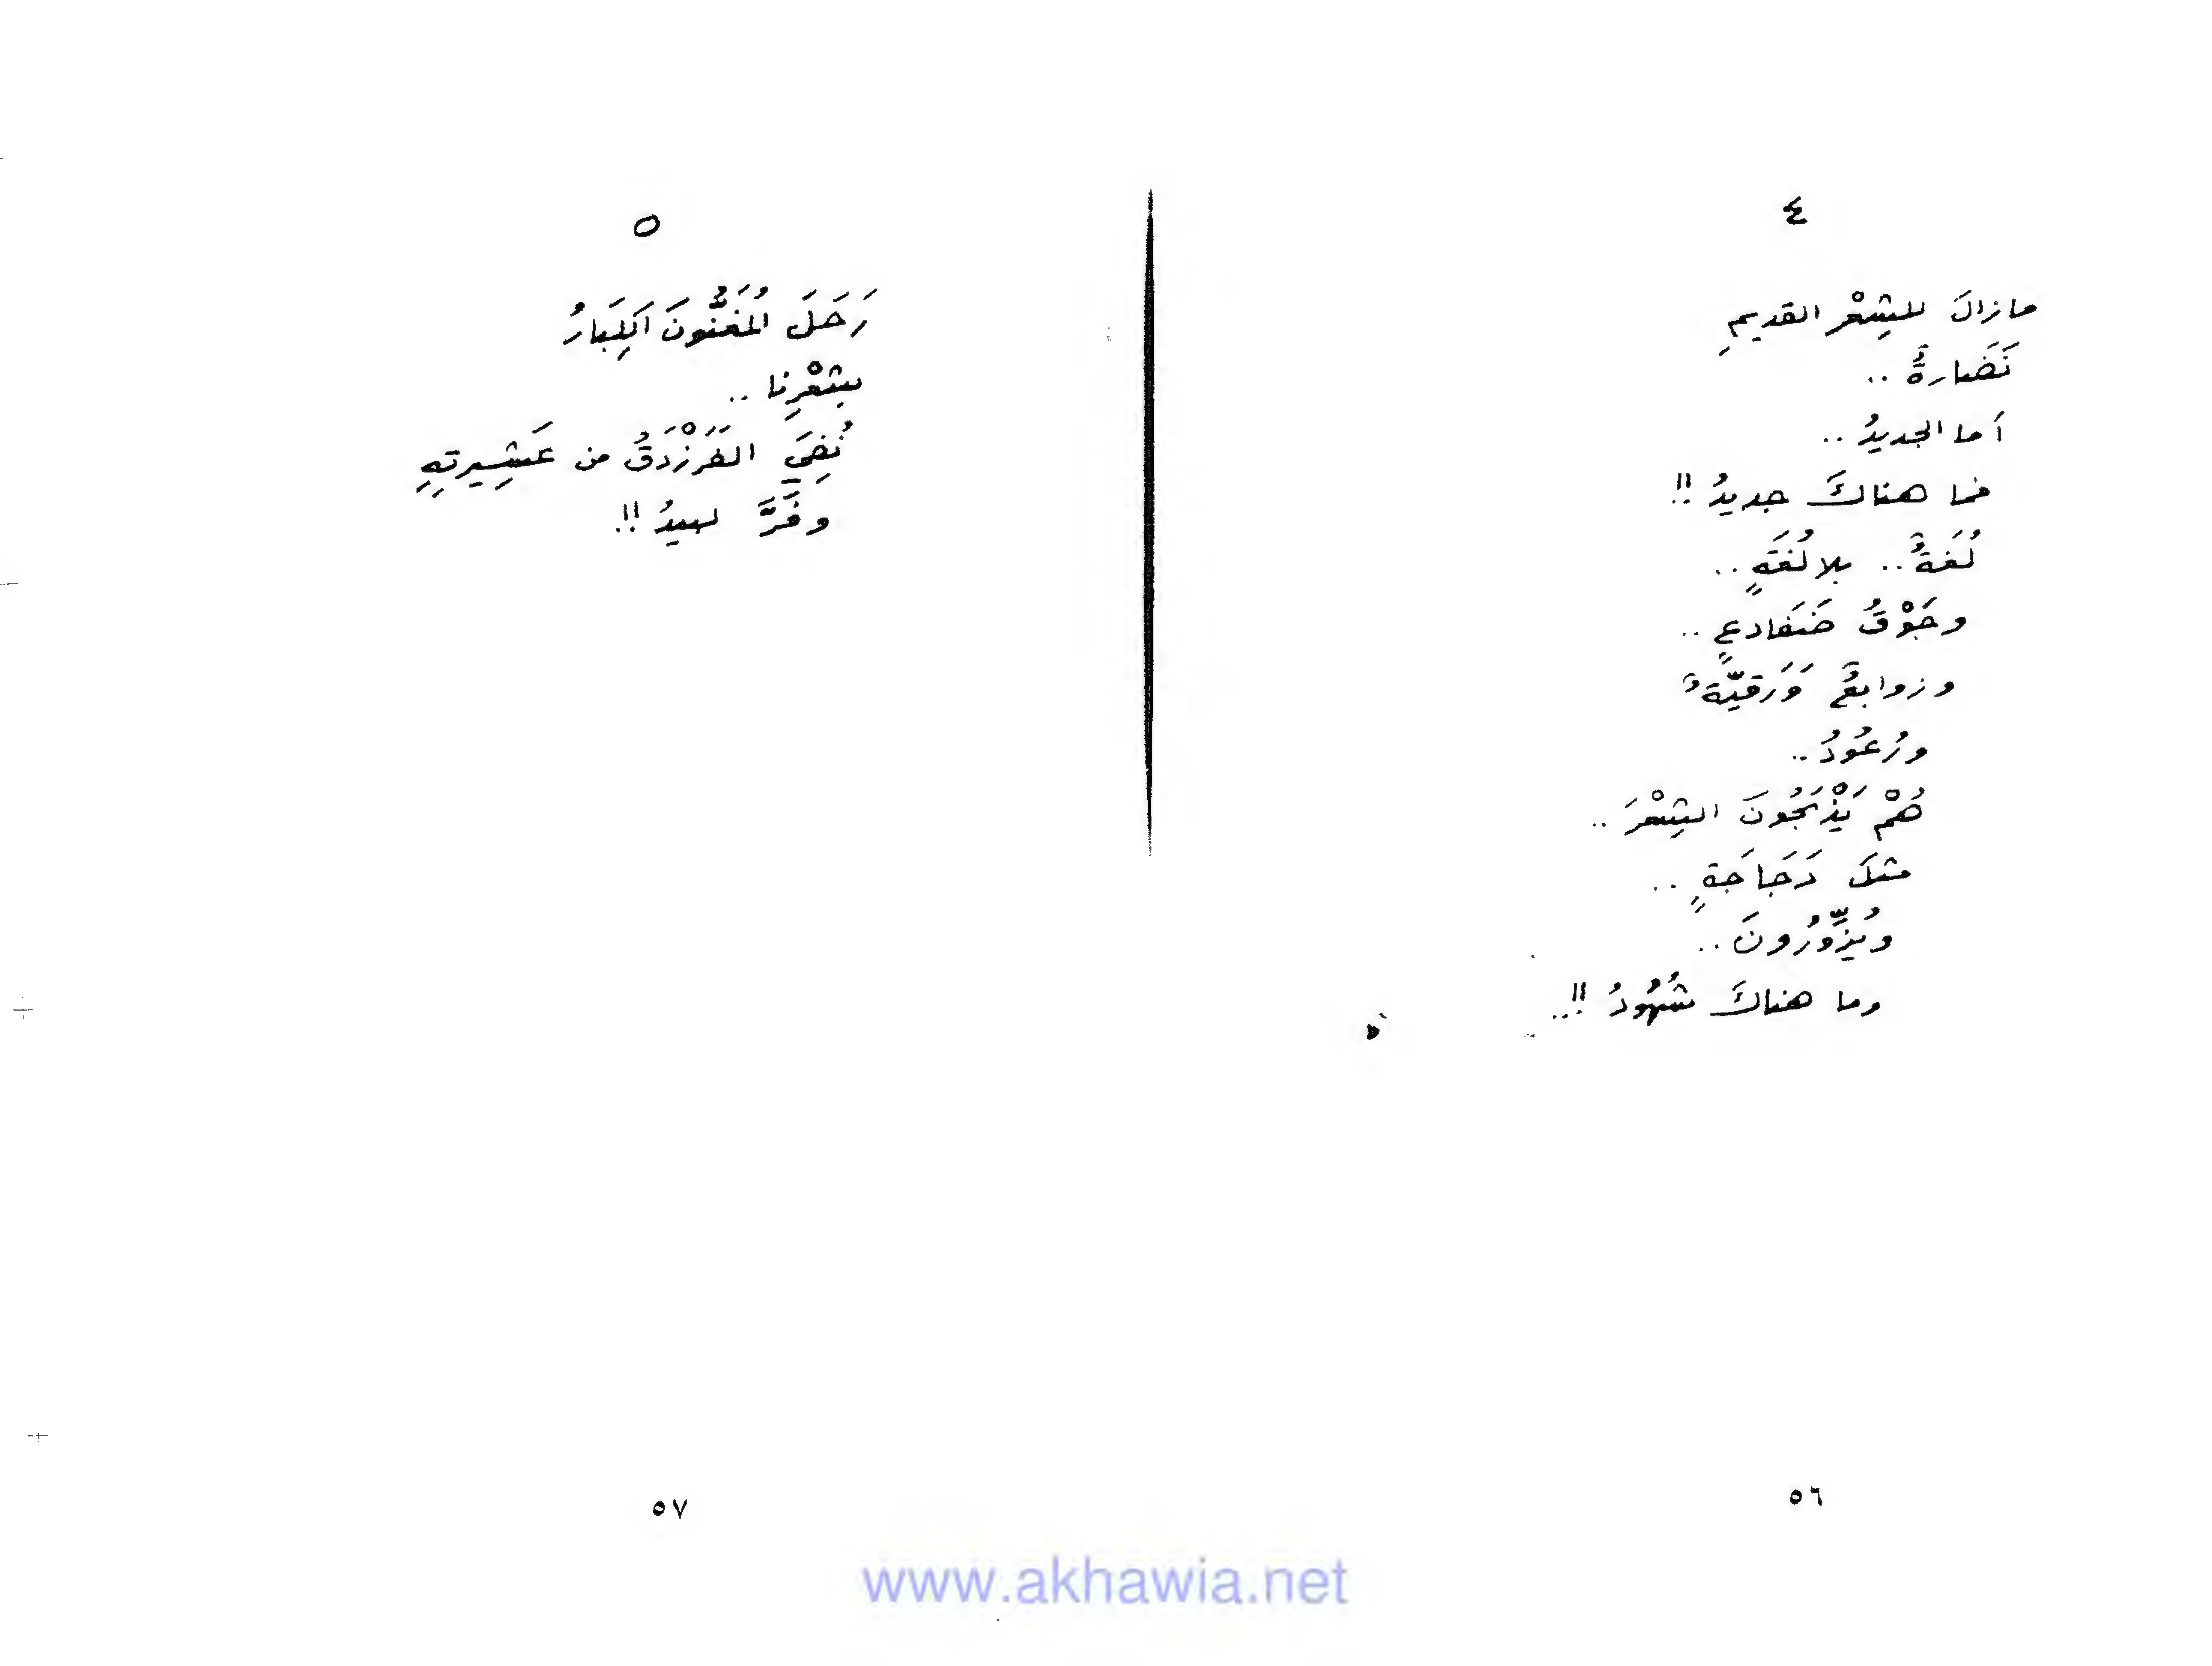 ٤
مازالَ للشِعْرِ القديمِ
نَضَارةٌ ..
أما الجديدُ ..
فما هناكَ جديدُ !!
لُغَةٌ .. بلا لُغَةٍ ..
وجَوْقُ ضَفَادعٍ ..
وزوابعٌ وَرَقيّةٌ
ورُعُودُ ..
هُمْ يَذْبَحُونَ الشِعْرَ ..
مثلَ دَجَاجَةٍ ..
ويُزوِّرُونَ ..
وما هناكَ شُهُودُ !!..
٥٦
٥
رَحَلَ المُغَنُّونَ الكِبَارُ
بشِعْرِنا ..
نُفِيَ الفَرَزْدَقُ من عَشِيرتِهِ
وفَرَّ لبيدُ !!.
٥٧
www.akhawia.net